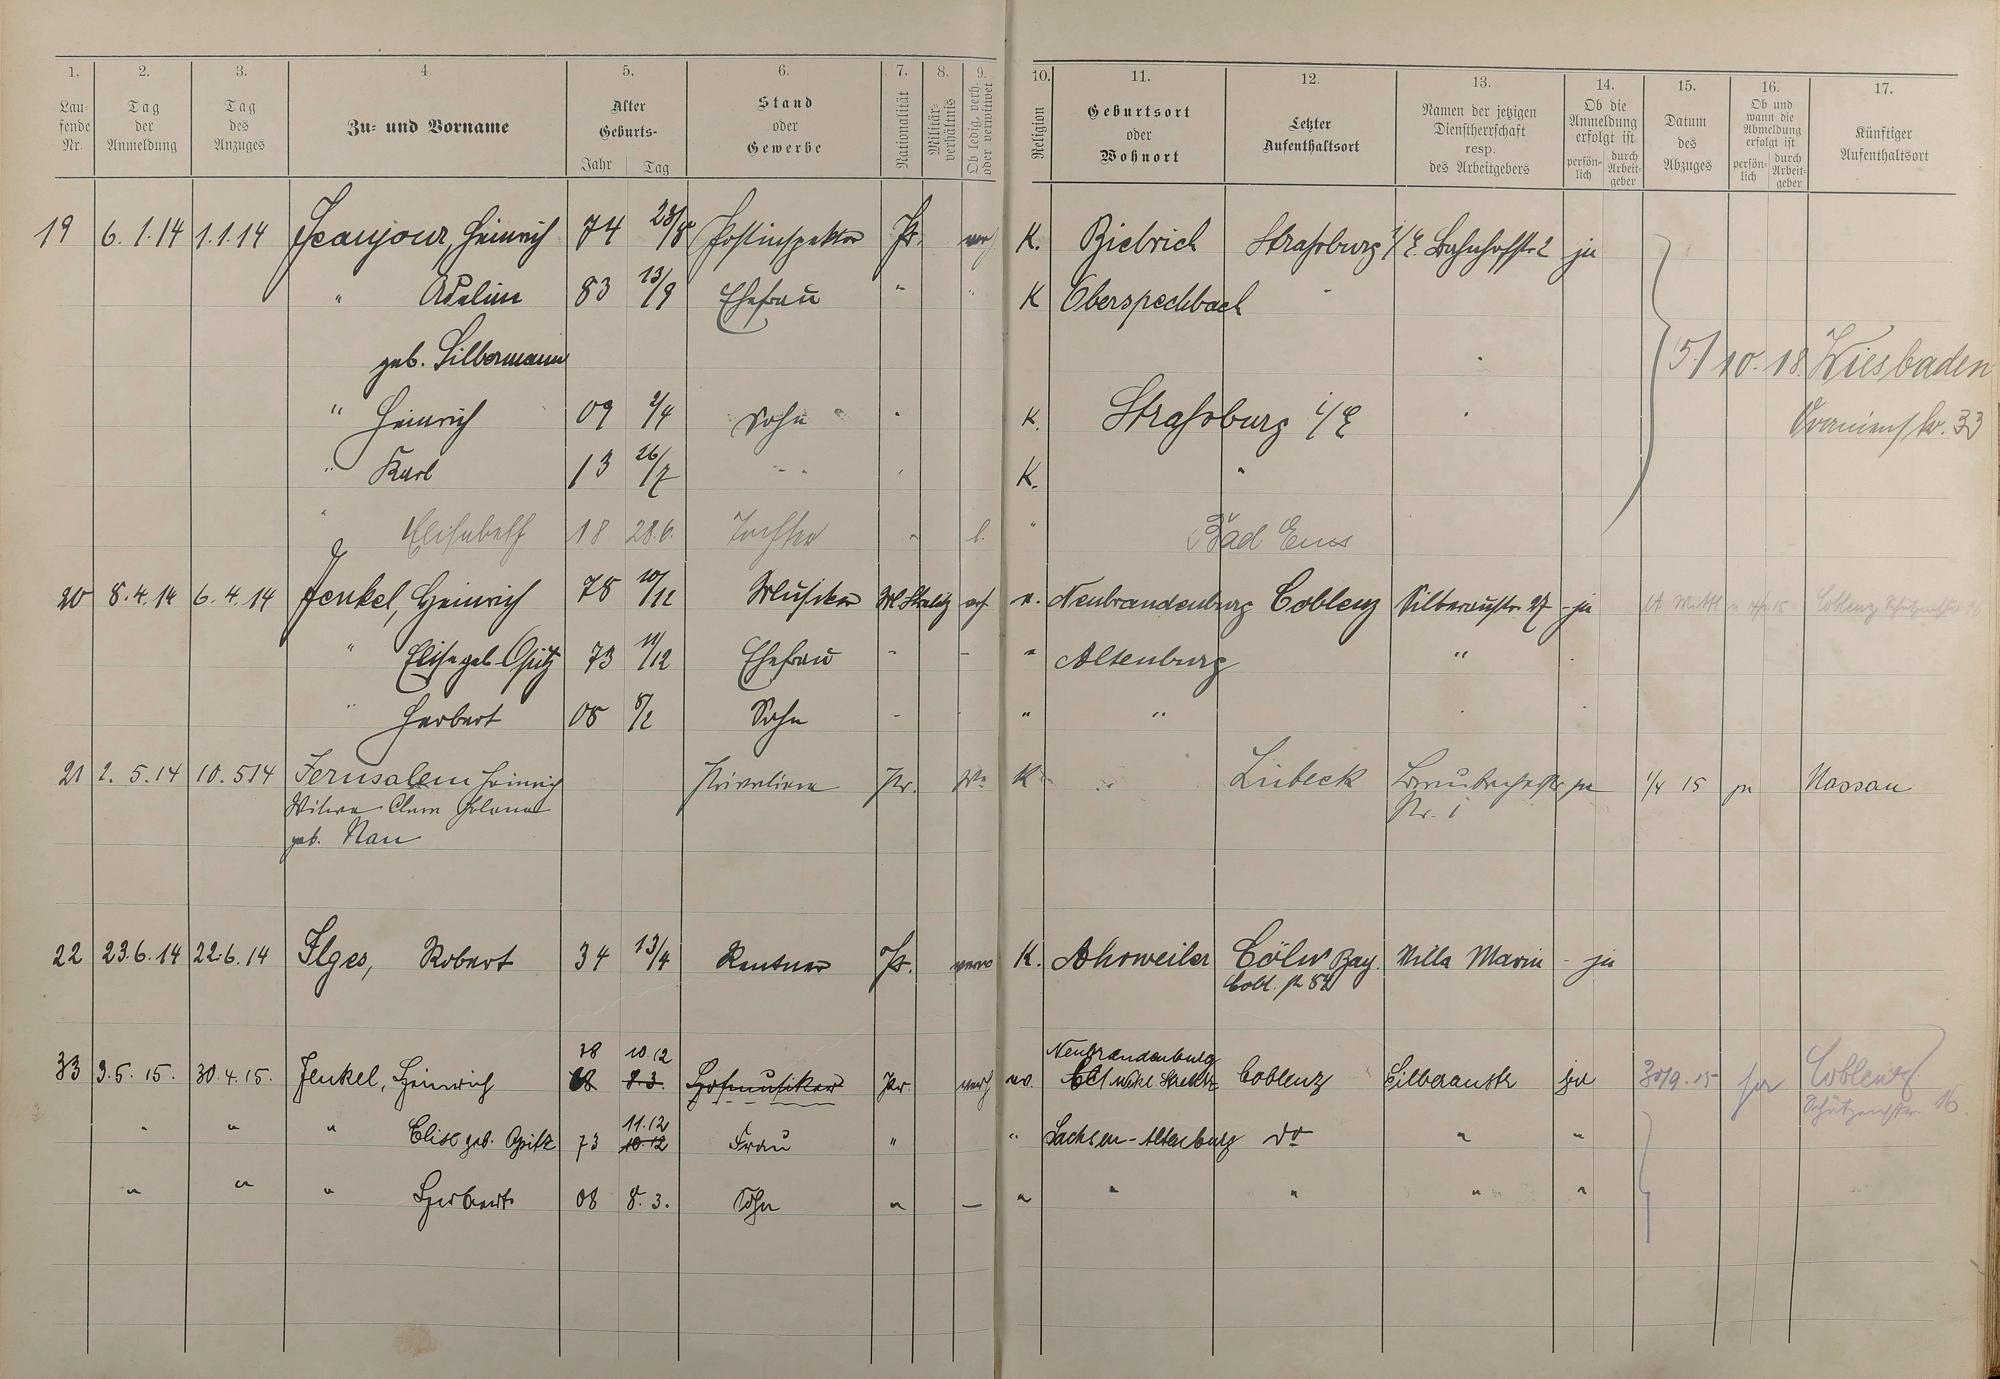 1. 2. 3. 4. 5. 6. 7. 8. 9. 10. 11. 12. 13. 14. 15. 16. 17.
Laufende Nr. Tag der Anmeldung Tag des Anzuges Zu- und Vorname Alter Geburts- Jahr Tag Stand oder Gewerbe Nationalität Militärverhältnis Ob ledig, verh. oder verwitwet Religion Geburtsort oder Wohnort Letzter Aufenthaltsort Namen der jetzigen Dienstherrschaft resp. des Arbeitgebers Ob die Anmeldung erfolgt ist persönlich durch Arbeitgeber Datum des Abzuges Ob und wann die Abmeldung erfolgt ist persönlich durch Arbeitgeber Künftiger Aufenthaltsort
19 6.1.14 1.1.14 Jeanjour, Heinrich 74 23/8 Postinspektor Pr. verh K. Biebrich Straßburg i/E. Bahnhofstr 2 ja
" 83 13/9 Ehefrau " " K Oberspechbach "
geb. Silbermann 5/10.18. Wiesbaden
" Heinrich 09 2/4 Sohn " K. Straßburg i/E Oranienstr. 33
" Karl 13 26/7 " K. "
" Elisabeth 18 28.6. Tochter " l. " Bad Ems
20 8.4.14 6.4.14 Jenkel, Heinrich 78 10/12 Musiker M Strelitz verh. e. Neubrandenburg Coblenz Silberaustr. 27 - ja Coblenz
" Elise geb. Opitz 73 11/12 Ehefrau " - " Altenburg "
" Herbert 08 8/2 Sohn - " "
21 2.5.14 10.5 14 Jerusalem Heinrich Privatiere Pr. Ww K Lübeck ja 1/4 15 ja Nassau
Witwe Clara Helena Nr. 1
geb. Nau
22 23.6.14 22.6.14 Ilges, Robert 34 13/4 Rentner Pr. verw K. Ahrweiler Cöln Bay. Villa Marin - ja
Cobl.
38 10.12 Neubrandenburg
33 3.5.15. 30.4.15. Jenkel, Heinrich 68 8.3. Hofmusiker Pr verh ev. Coblenz Silberaustr ja 30/9.15 ja Coblenz
11.12 Schützenstr. 16.
" " " Elise geb. Opitz 73 10.12 Frau " " Sachsen-Altenburg do " "
" " " Herbert 08 8.3. Sohn " — " " " " "